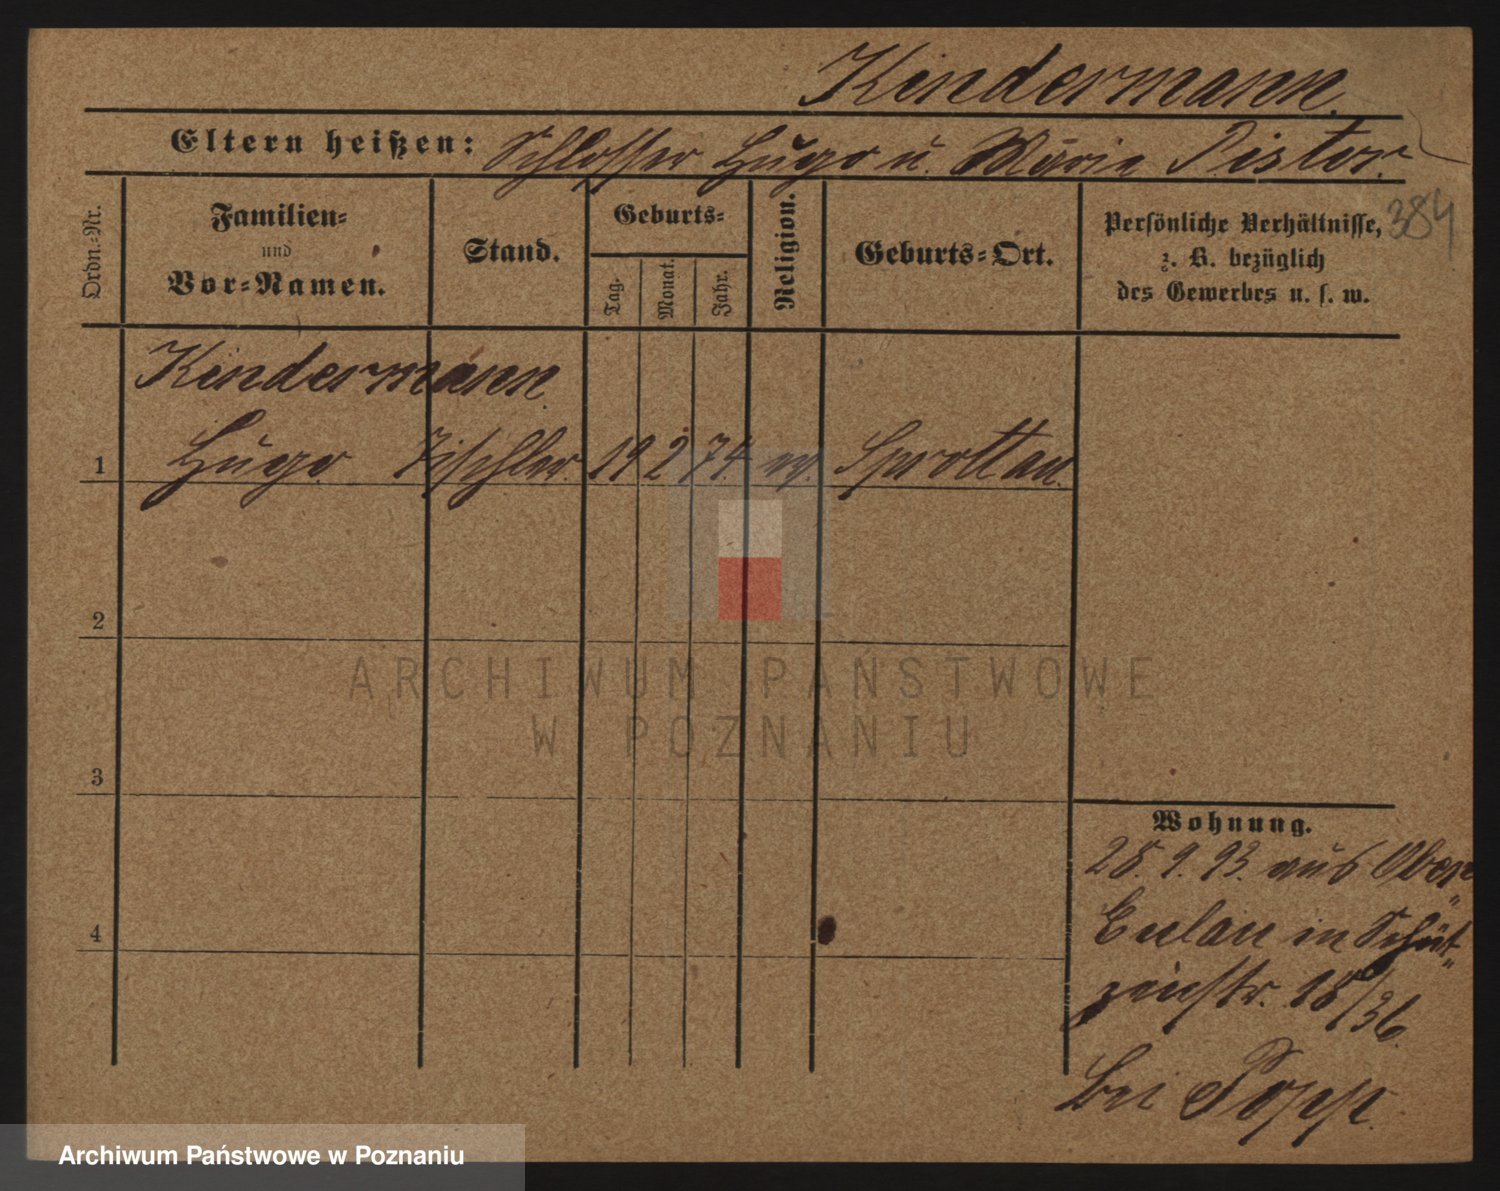 Kindermann.
Eltern heißen: Schlosser Hugo u. Marie Pistor.
384
Ordn.-Nr.
Familien-
und
Vor-Namen.
Stand.
Geburts-
Tag.
Monat.
Jahr.
Religion.
Geburts-Ort.
Persönliche Verhältnisse,
z. B. bezüglich
des Gewerbes u. s. w.
Kindermann
1 Hugo. Tischler. 19 2 74. ev. Sprottau.
2
3
4
Wohnung.
28. 9. 93. aus Ober
Eulau in Schüt„
zenstr. 18/36.
bei Popp.
ARCHIWUM PAŃSTWOWE
W POZNANIU
Archiwum Państwowe w Poznaniu